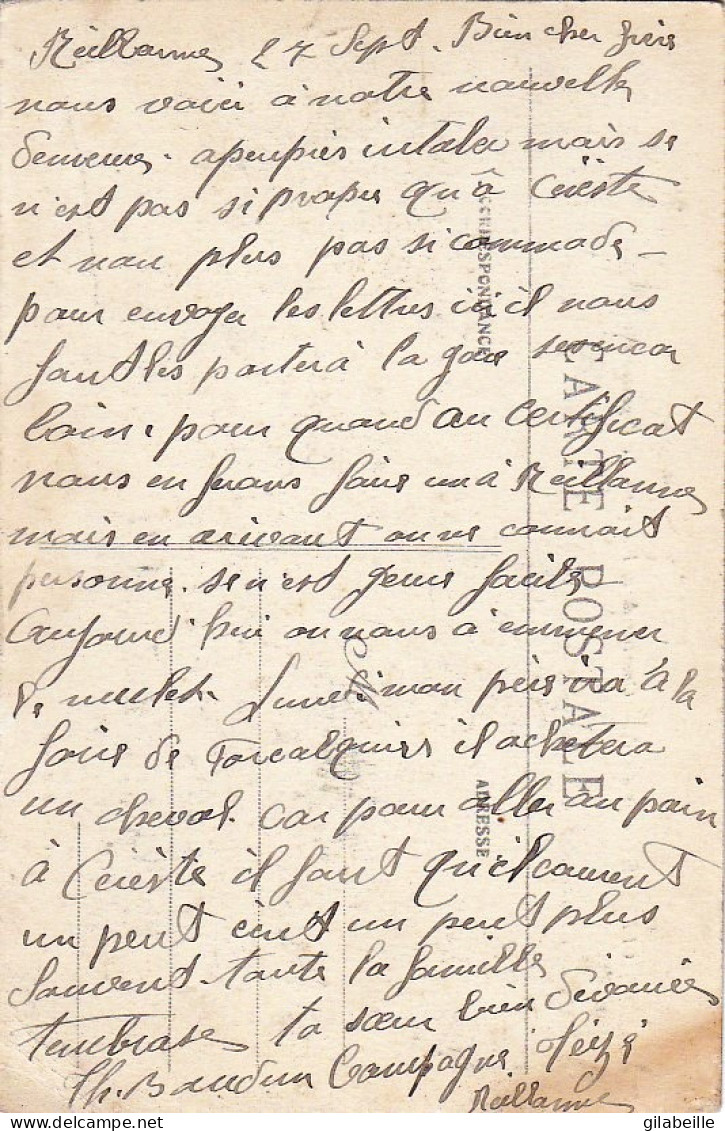 Reillanne 27 Sept. Bien cher frère
nous voici à notre nouvelle
demeure. apeuprès intaler mais se
n'est pas si propre qu'a Céreste
et non plus pas si commode
pour envoyer les lettres ici il nous
faut les porter à la gare
loin. pour quand au certificat
nous en ferons faire un à Reillanne
mais en arrivant on ne connait
personne. se n'est guère facile
Aujourd'hui on nous à emmener
le mulet. Lundi mon père ira à la
foire de Forcalquier il achetera
un cheval. car pour aller au pain
à Céreste il faut qu'il courent
un peut écrit un peut plus
souvent. toute la famille
t'embrasse ta sœur bien dévouée
Th. Baudun Campagne
Reillanne
CARTE POSTALE
CORRESPONDANCE
ADRESSE
gilabeille